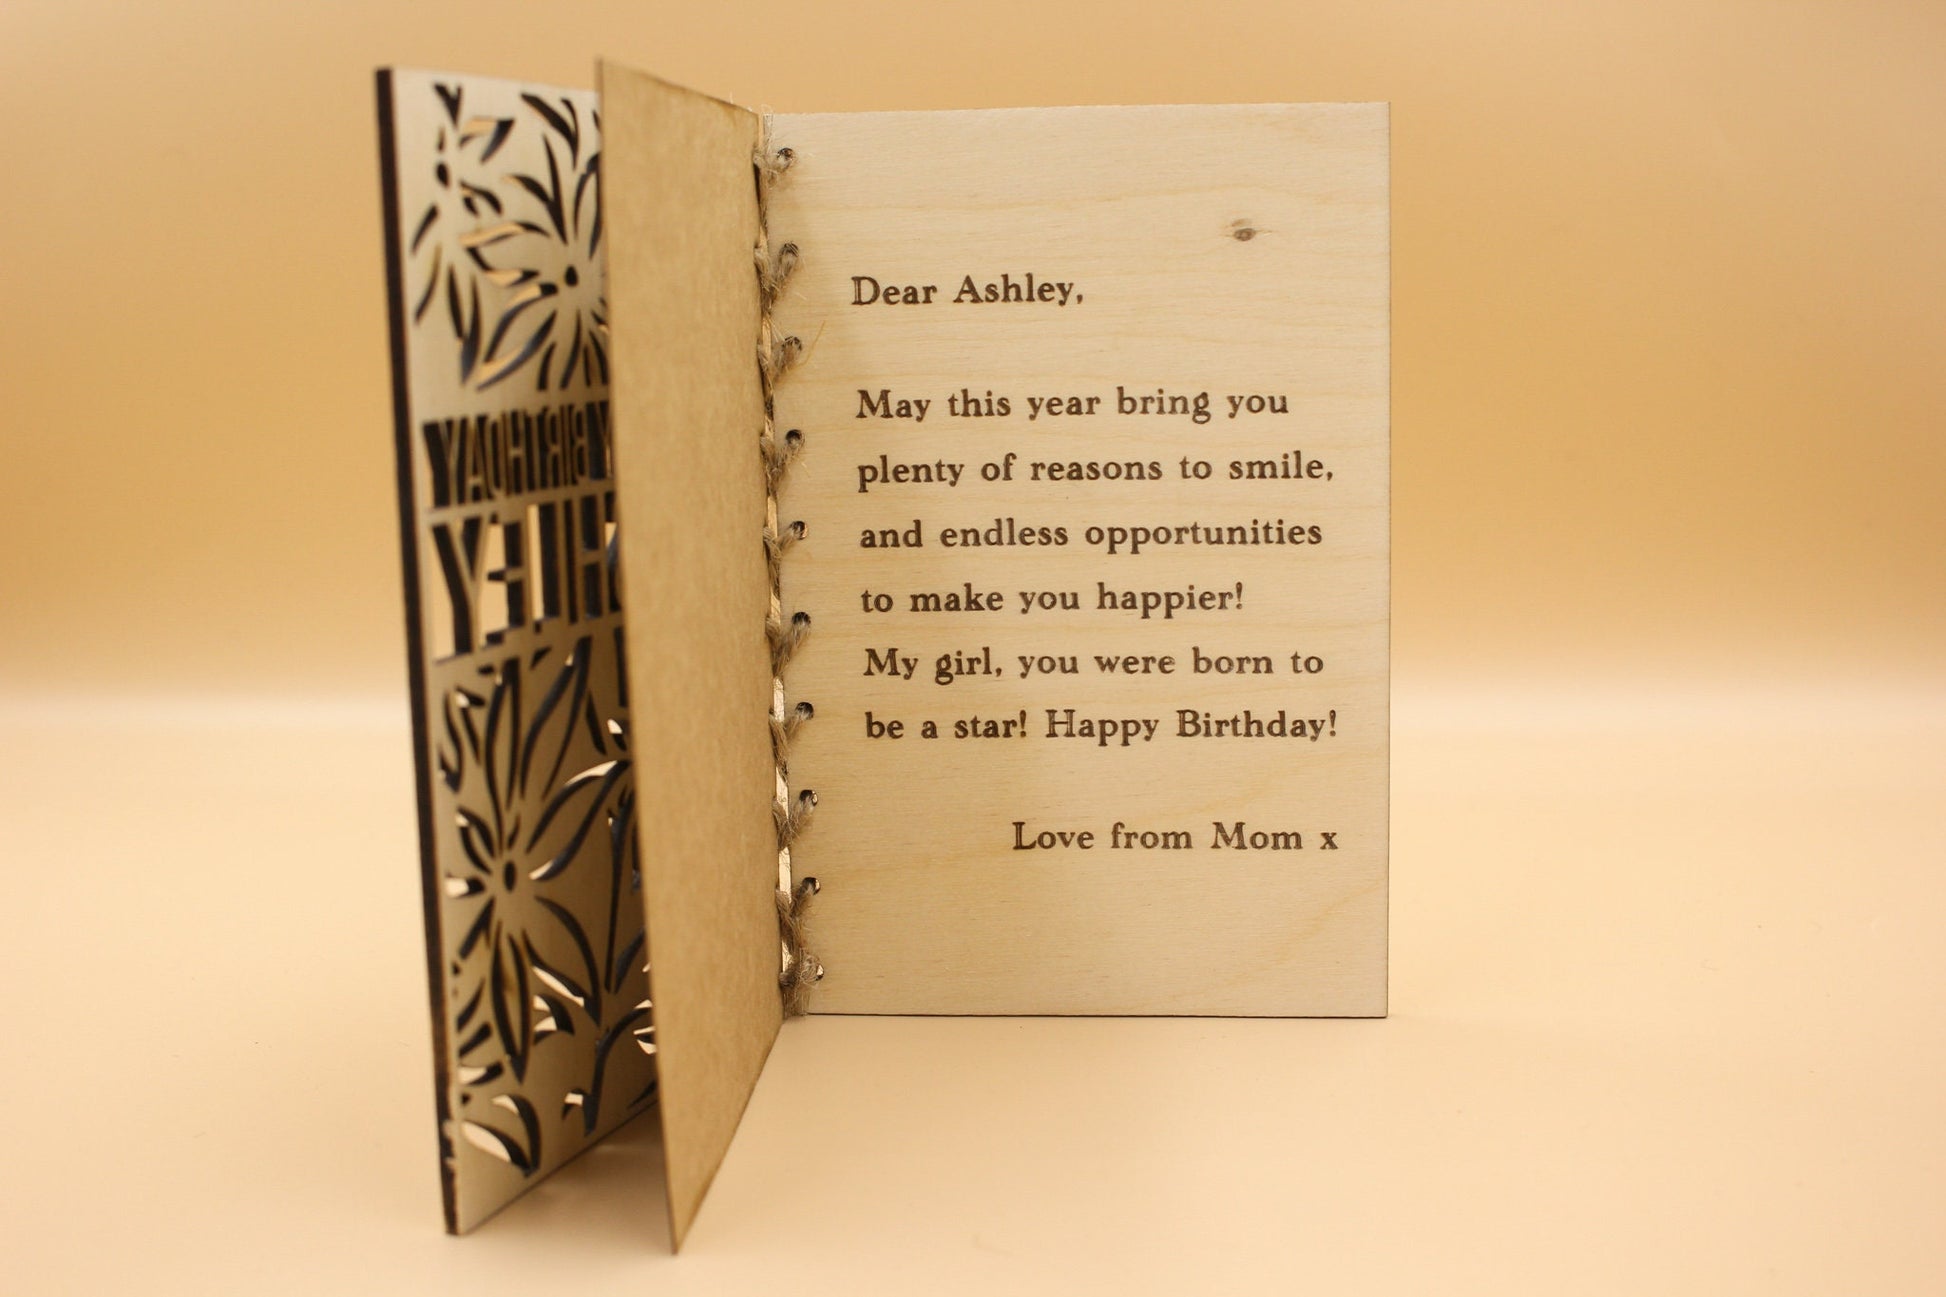 Dear Ashley,
May this year bring you
plenty of reasons to smile,
and endless opportunities
to make you happier!
My girl, you were born to
be a star! Happy Birthday!
Love from Mom x
BIRTHDAY